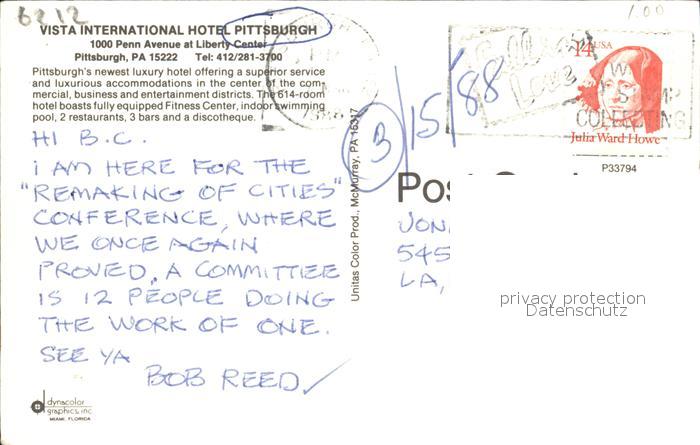 6212
1.00
VISTA INTERNATIONAL HOTEL PITTSBURGH
1000 Penn Avenue at Liberty Center
Pittsburgh, PA 15222 Tel: 412/281-3700
Pittsburgh's newest luxury hotel offering a superior service
and luxurious accommodations in the center of the com
mercial, business and entertainment districts. The 614-room
hotel boasts fully equipped Fitness Center, indoor swimming
pool, 2 restaurants, 3 bars and a discotheque.
HI B.C.
I AM HERE FOR THE
"REMAKING OF CITIES"
CONFERENCE, WHERE
WE ONCE AGAIN
PROVED, A COMMITTEE
IS 12 PEOPLE DOING
THE WORK OF ONE.
SEE YA
BOB REED
dynacolor
graphics, inc
MIAMI, FLORIDA
Unitas Color Prod., McMurray, PA 15317
3/15/88
Love
COLLECTING
14 USA
Julia Ward Howe
P33794
Pos
JON
545
LA,
privacy protection
Datenschutz